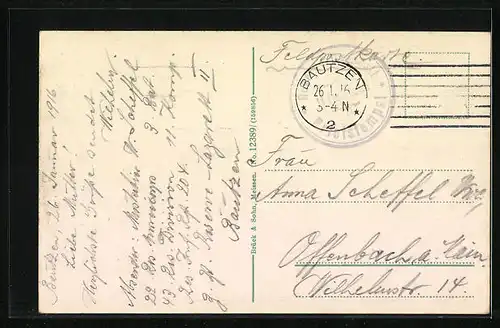 Bautzen, 26. Januar 1916
Liebe Mutter!
Herzlichste Grüße sendet
Wilhelm.
Absender: Musketier W. Scheffel
22 Res. Armeekorps 3 Bat.
43 Res. Division 11 Komp.
Res. Inf. Reg. 204.
z. Zt. Reserve-Lazarett II
Bautzen
Brück & Sohn, Meissen. No. 12389. (180908)
Feldpostkarte.
BAUTZEN
26.1.16
3-4 N
* 2 *
Frau
Anna Scheffel
Offenbach a. Main.
Wilhelmstr. 14.